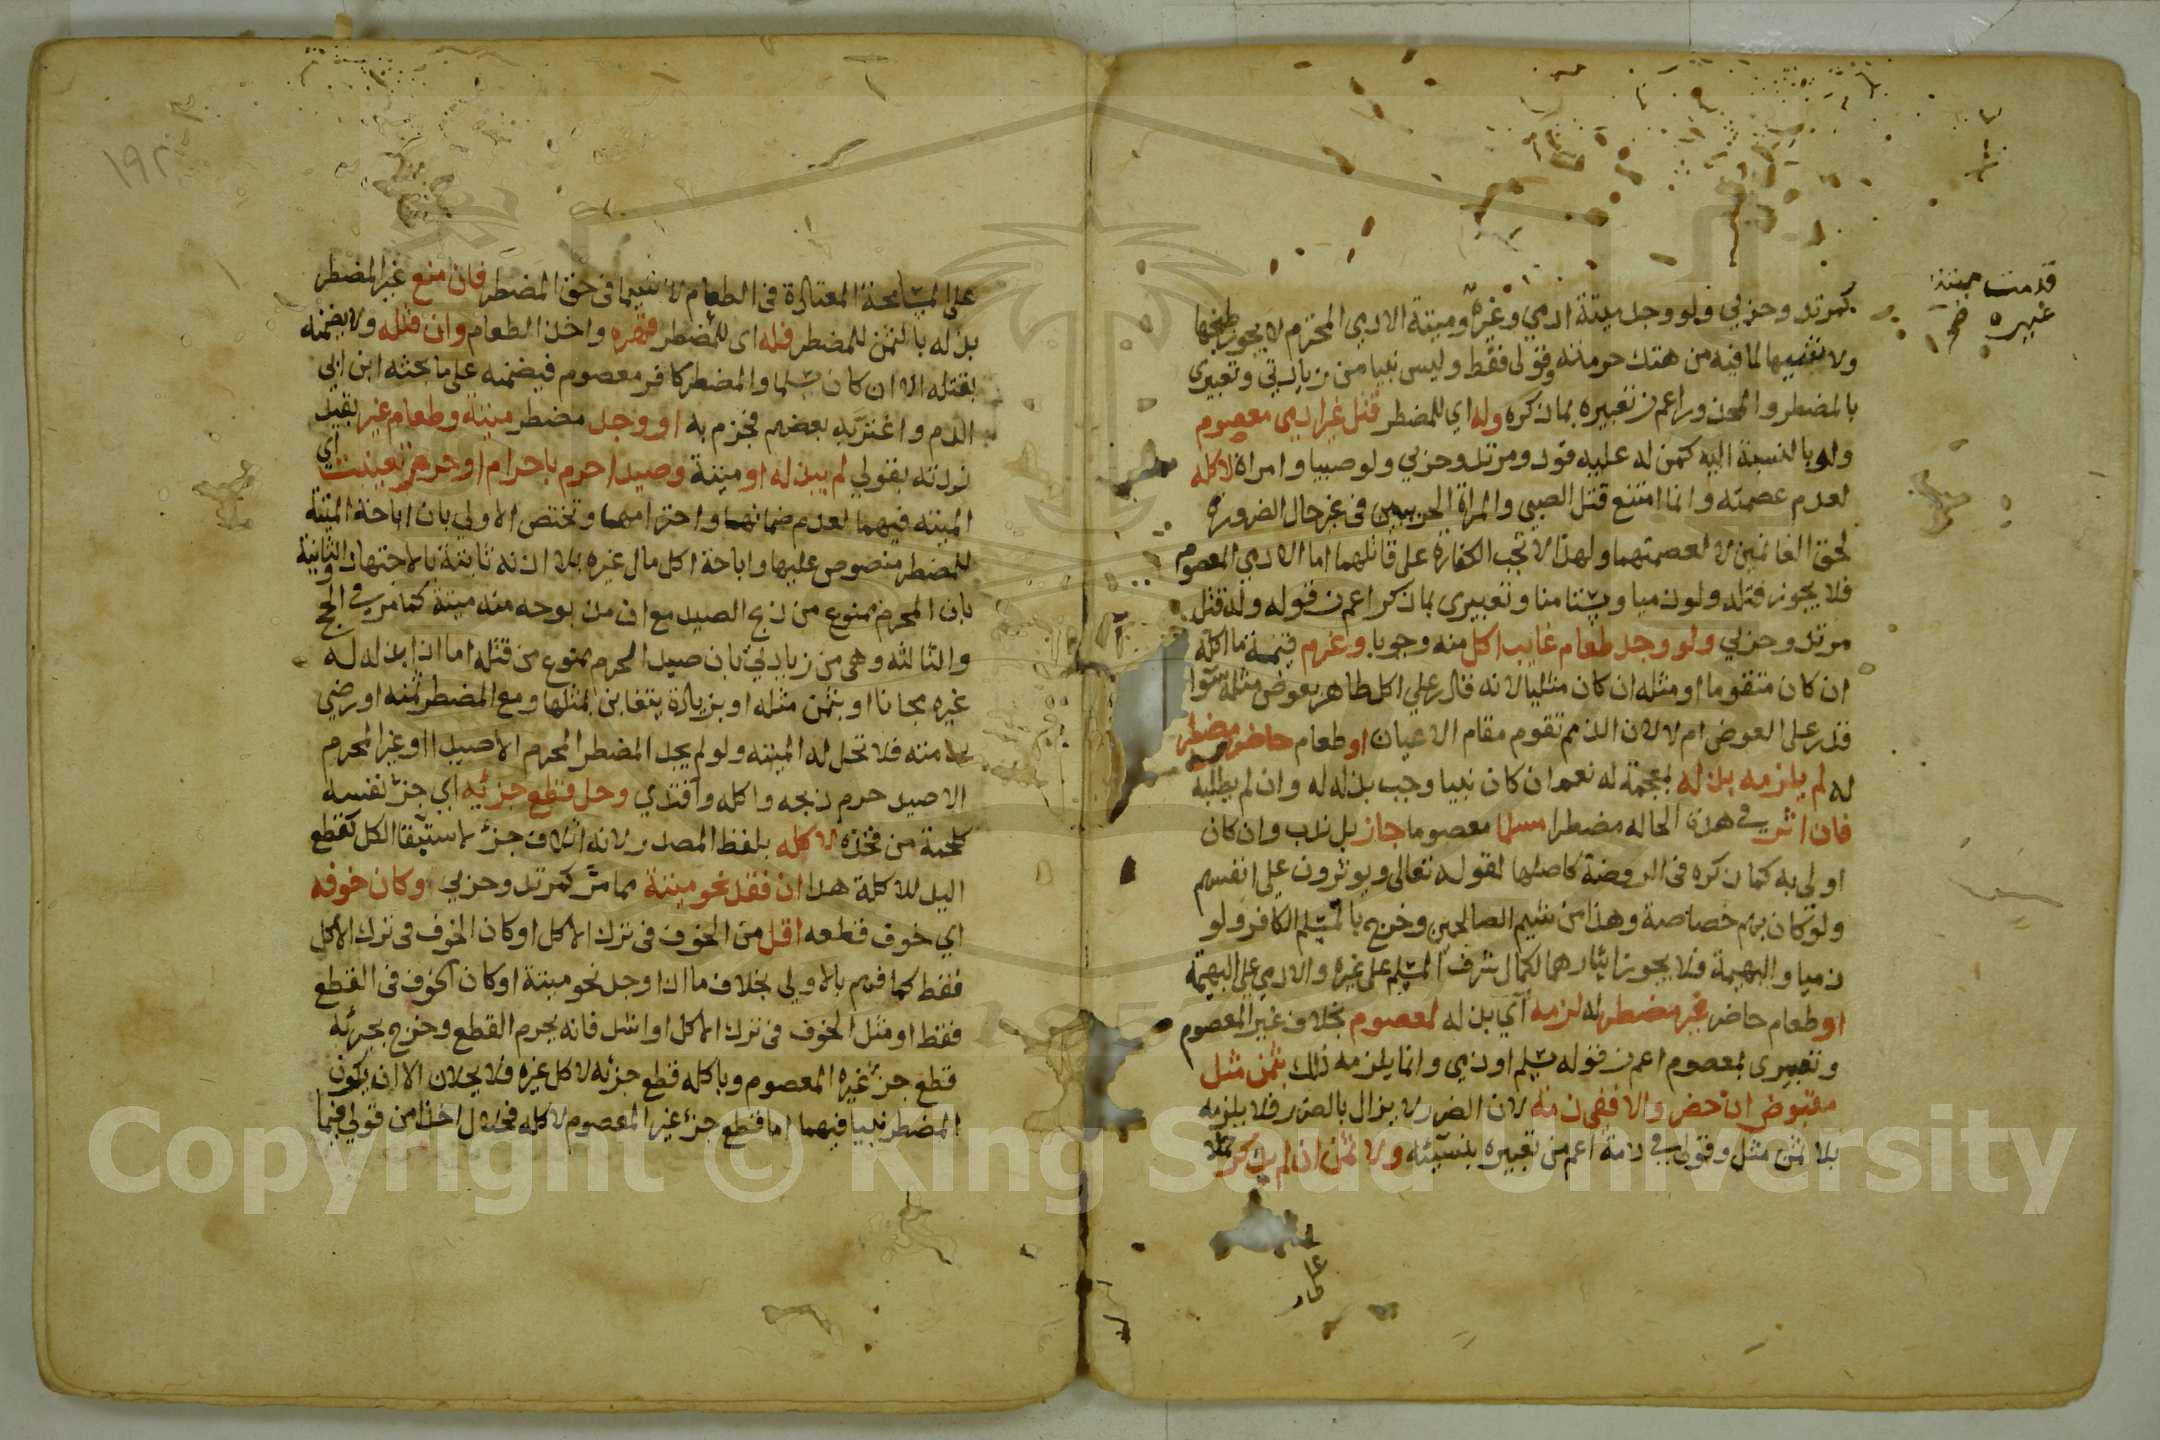 كمرتد وحربي ولو وجد ميتة ادمي وغيره وميتة الادمي المحترم لا يجوز طبخها
قدمت ميتة
غيره صح
ولا شيها لما فيه من هتك حرمته وقولي فقط وليس نبيا من زيادتي وتعبيرى
بالمضطر والمعذور اعم من تعبيره بما ذكره وله اي للمضطر قتل غير ادمي معصوم
ولو بالنسبة اليه كمن له عليه قود ومرتد وحربي ولو صبيا وامراة لاكله
لعدم عصمته وانما امتنع قتل الصبي والمراة الحربيين في غير حال الضرورة
لحق الغانمين لا لعصمتهما ولهذا لا تجب الكفارة على قاتلهما اما الادمي المعصوم
فلا يجوز قتله ولو ذميا ومستامنا وتعبيرى بما ذكر اعم من قوله وله قتل
مرتد وحربي ولو وجد طعام غايب اكل منه وجوبا وغرم قيمة ما اكله
ان كان متقوما او مثله ان كان مثليا لانه قادر على اكل طاهر بعوض مثله سوا
قدر على العوض ام لا لان الذمم تقوم مقام الاعيان او طعام حاضر مضطر
له لم يلزمه بذله لمعجمة له نعم ان كان نبيا وجب بذله له وان لم يطلبه
فان اثر في هذه الحاله مضطرا مسلما معصوما جاز بل ندب وان كان
اولى به كما ذكره في الروضة كاصلها لقوله تعالى ويوثرون على انفسهم
ولو كان بهم خصاصة وهذا من شيم الصالحين وخرج بالمسلم الكافر ولو
ذميا والبهيمة فلا يجوز ايثارهما لكمال شرف المسلم على غيره والادمي على البهيمة
او طعام حاضر غير مضطر له لزمه اي بذله لمعصوم بخلاف غير المعصوم
وتعبيرى بمعصوم اعم من قوله مسلم او ذمي وانما يلزمه ذلك بثمن مثل
مقبوض ان حضر والا ففي ذمة لان الضرر لا يزال بالضرر فلا يلزمه
بلا ثمن مثل وقولي في ذمة اعم من تعبيره بنسيئه ولا ثمن ان لم يذكر حملا
على
١٩٢
على المسامحة المعتادة في الطعام لا سيما في حق المضطر فان منع غير المضطر
بذله بالثمن للمضطر فله اى للمضطر قهره واخذ الطعام وان قتله ولا يضمنه
بقتله الا ان كان مسلما والمضطر كافر معصوم فيضمنه على ما بحثه ابن ابي
الدم واغتر به بعضهم فجزم به او وجد مضطر ميتة وطعام غير بقيد
زدته بقولي لم يبذله او ميتة وصيدا حرم باحرام او حرم تعينت اي
الميته فيهما لعدم ضمانهما واحترامهما وتختص الاولي بان اباحة الميتة
للمضطر منصوص عليها واباحة اكل مال غيره بلا اذنه ثابتة بالاجتهاد والثانية
بان المحرم ممنوع من ذبح الصيد مع ان مذبوحه منه ميتة كما مر في الحج
والثالثه وهي من زيادتي بان صيد الحرم ممنوع من قتله اما اذا بذله له
غيره مجانا او بثمن مثله او بزيادة يتغابن بمثلها ومع المضطر ثمنه او رضي
بذمته فلا تحل له الميته ولو لم يجد المضطر المحرم الا صيدا او غير المحرم
الا صيد حرم ذبحه واكله وافتدي وحل قطع جزئه اي جزء نفسه
كلحمة من فخذه لاكله بلفظ المصدر لانه اتلاف جزء لاستبقا الكل كقطع
اليد للاكلة هذا ان فقد نحو ميتة مما مر كمرتد وحربي وكان خوفه
اي خوف قطعه اقل من الخوف في ترك الاكل او كان الخوف في ترك الاكل
فقط كما فهم بالاولي بخلاف ما اذا وجد نحو ميتة او كان الخوف في القطع
فقط او مثل الخوف في ترك الاكل او اشد فانه يحرم القطع وخرج بجزئه
قطع جزء غيره المعصوم وباكله قطع جزئه لاكل غيره فلا يحلان الا ان يكون
المضطر نبيا فيهما اما قطع جزء غير المعصوم لاكله فحلال اخذا من قولي فيما
Copyright © King Saud University